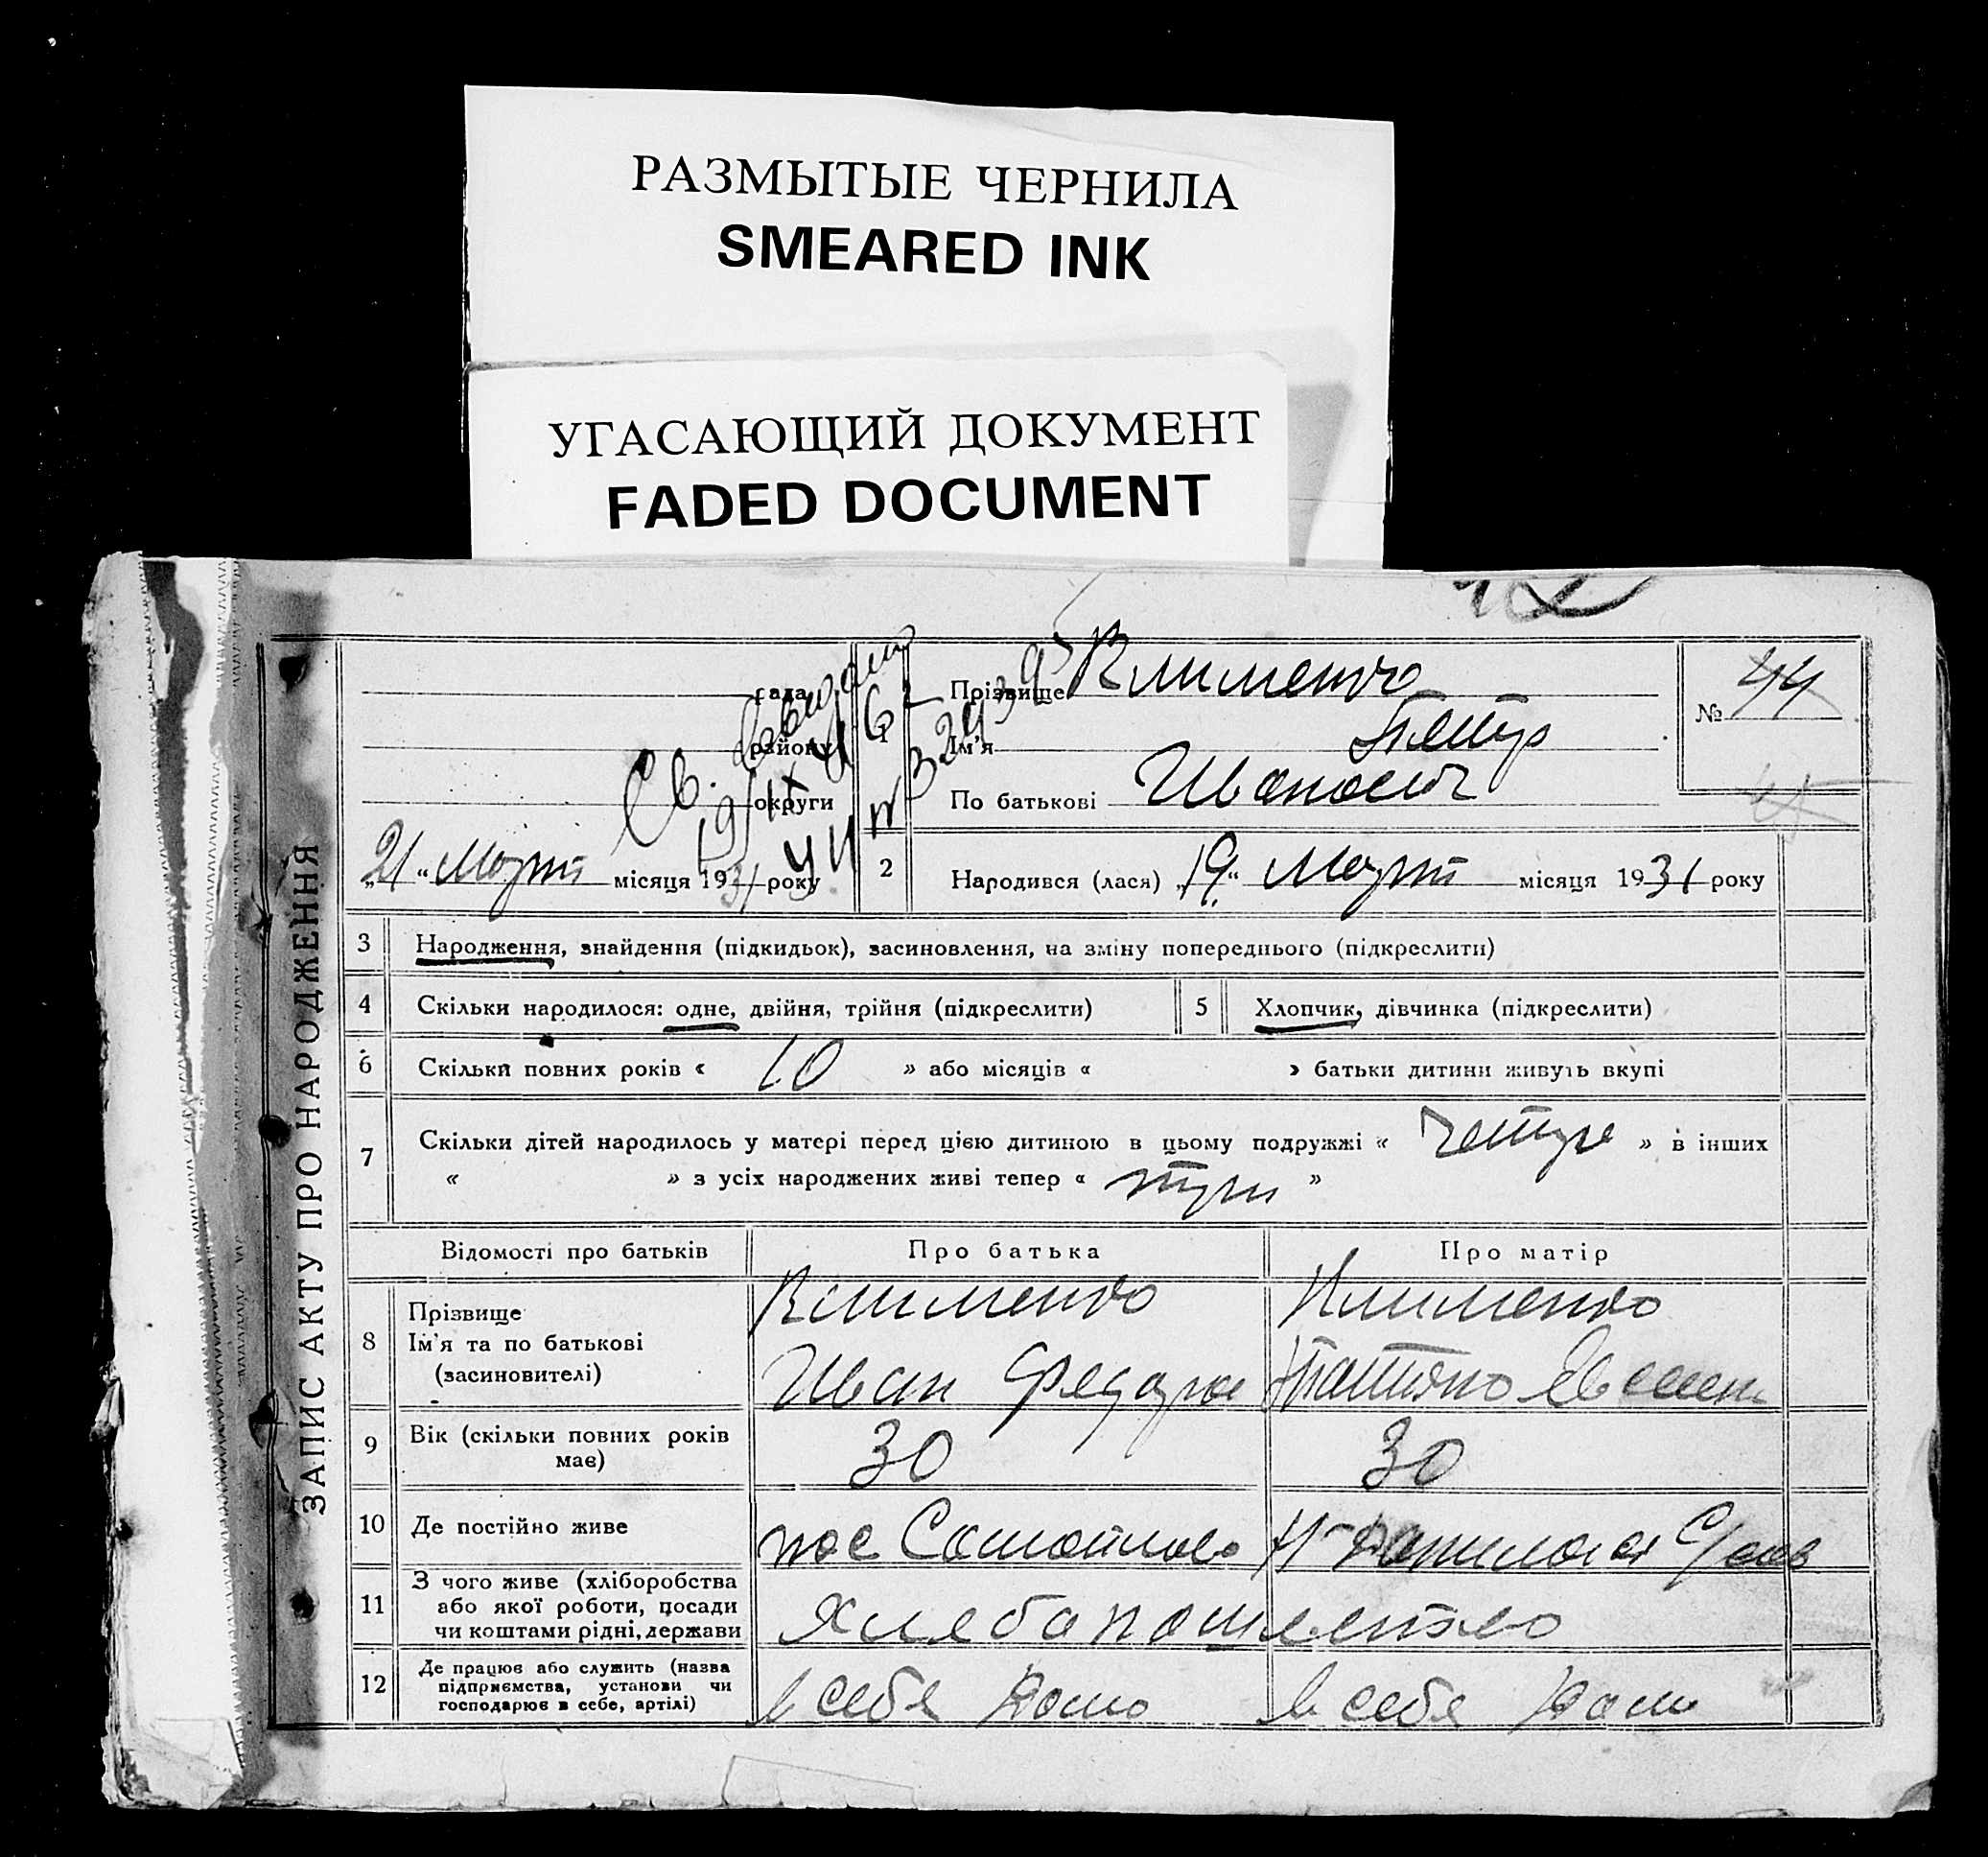 РАЗМЫТЫЕ ЧЕРНИЛА
SMEARED INK
УГАСАЮЩИЙ ДОКУМЕНТ
FADED DOCUMENT
ЗАПИС АКТУ ПРО НАРОДЖЕННЯ
сада
району
округи
Св.
„21“ Март місяця 1931 року
1
Прізвище Клименко
Ім'я Петр
По батькові Иванович
№ 44
2
Народився (лася) „19“ Март місяця 1931 року
3 Народження, знайдення (підкидьок), засиновлення, на зміну попереднього (підкреслити)
4 Скільки народилося: одне, двійня, трійня (підкреслити)
5 Хлопчик, дівчинка (підкреслити)
6 Скільки повних років « 10 » або місяців « » батьки дитини живуть вкупі
7 Скільки дітей народилось у матері перед цією дитиною в цьому подружжі « » в інших
« » з усіх народжених живі тепер « три »
Відомості про батьків Про батька Про матір
8 Прізвище Клименко Клименко
Ім'я та по батькові Иван Федоров Татьяна
(засиновителі)
9 Вік (скільки повних років 30 30
має)
10 Де постійно живе пос
11 З чого живе (хліборобства
або якої роботи, посади
чи коштами рідні, держави
12 Де працює або служить (назва
підприємства, установи чи
господарює в себе, артілі)
в себя дома в себя дома